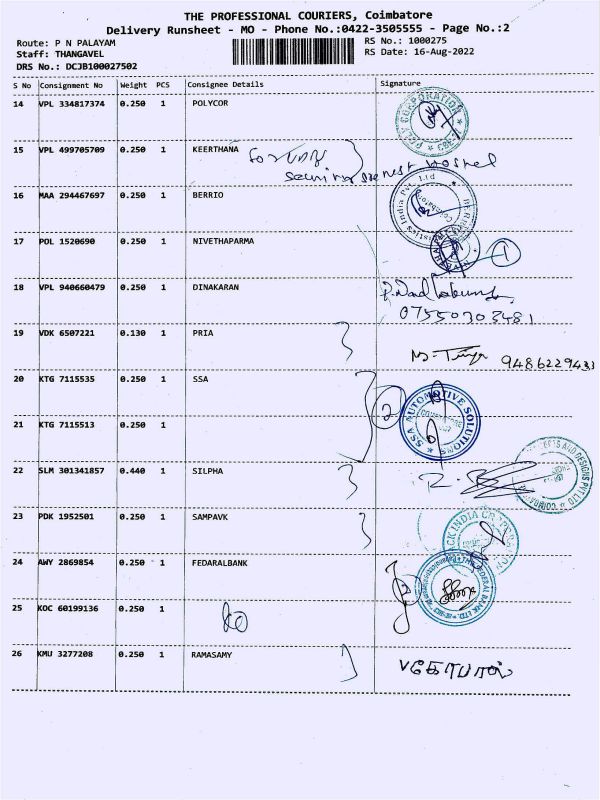 THE PROFESSIONAL COURIERS, Coimbatore
Delivery Runsheet - MO - Phone No.:0422-3505555 - Page No.:2
Route: P N PALAYAM
Staff: THANGAVEL
DRS No.: DCJB100027502
RS No.: 1000275
RS Date: 16-Aug-2022
S No Consignment No Weight PCS Consignee Details Signature
14 VPL 334817374 0.250 1 POLYCOR
15 VPL 499705709 0.250 1 KEERTHANA
hostel
16 MAA 294467697 0.250 1 BERRIO
17 POL 1520690 0.250 1 NIVETHAPARMA 1
18 VPL 940660479 0.250 1 DINAKARAN
07550303481
19 VDK 6507221 0.130 1 PRIA
9486229433
20 KTG 7115535 0.250 1 SSA
2
SSA AUTOMOTIVE SOLUTIONS
21 KTG 7115513 0.250 1
22 SLM 301341857 0.440 1 SILPHA
23 PDK 1952501 0.250 1 SAMPAVK
24 AWY 2869854 0.250 1 FEDARALBANK
25 KOC 60199136 0.250 1
26 KMU 3277208 0.250 1 RAMASAMY